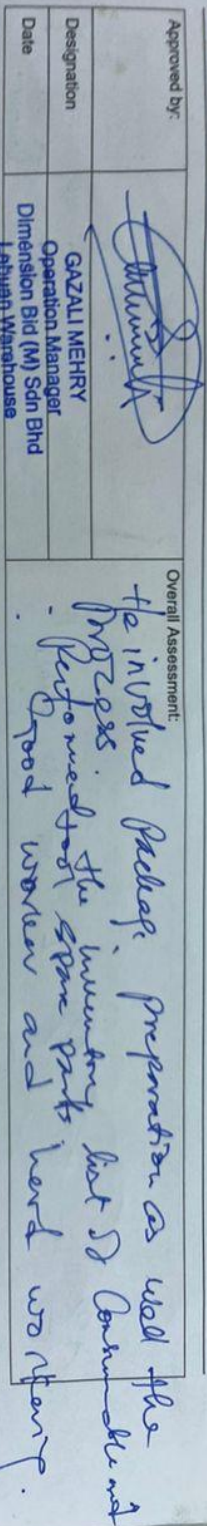 Approved by:
Designation
GAZALI MEHRY
Operation Manager
Date
Dimension Bid (M) Sdn Bhd
Labuan Warehouse
Overall Assessment:
He involved Package preparation as well the
process.
- Performed the inventory list of Consumable and
tool spare parts.
- Good worker and hard working.